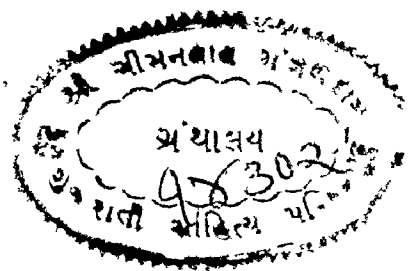 શ્રી ચીમનલાલ મંગળદાસ
ગ્રંથાલય
૧૪૩૦૨
ગુજરાતી સાહિત્ય